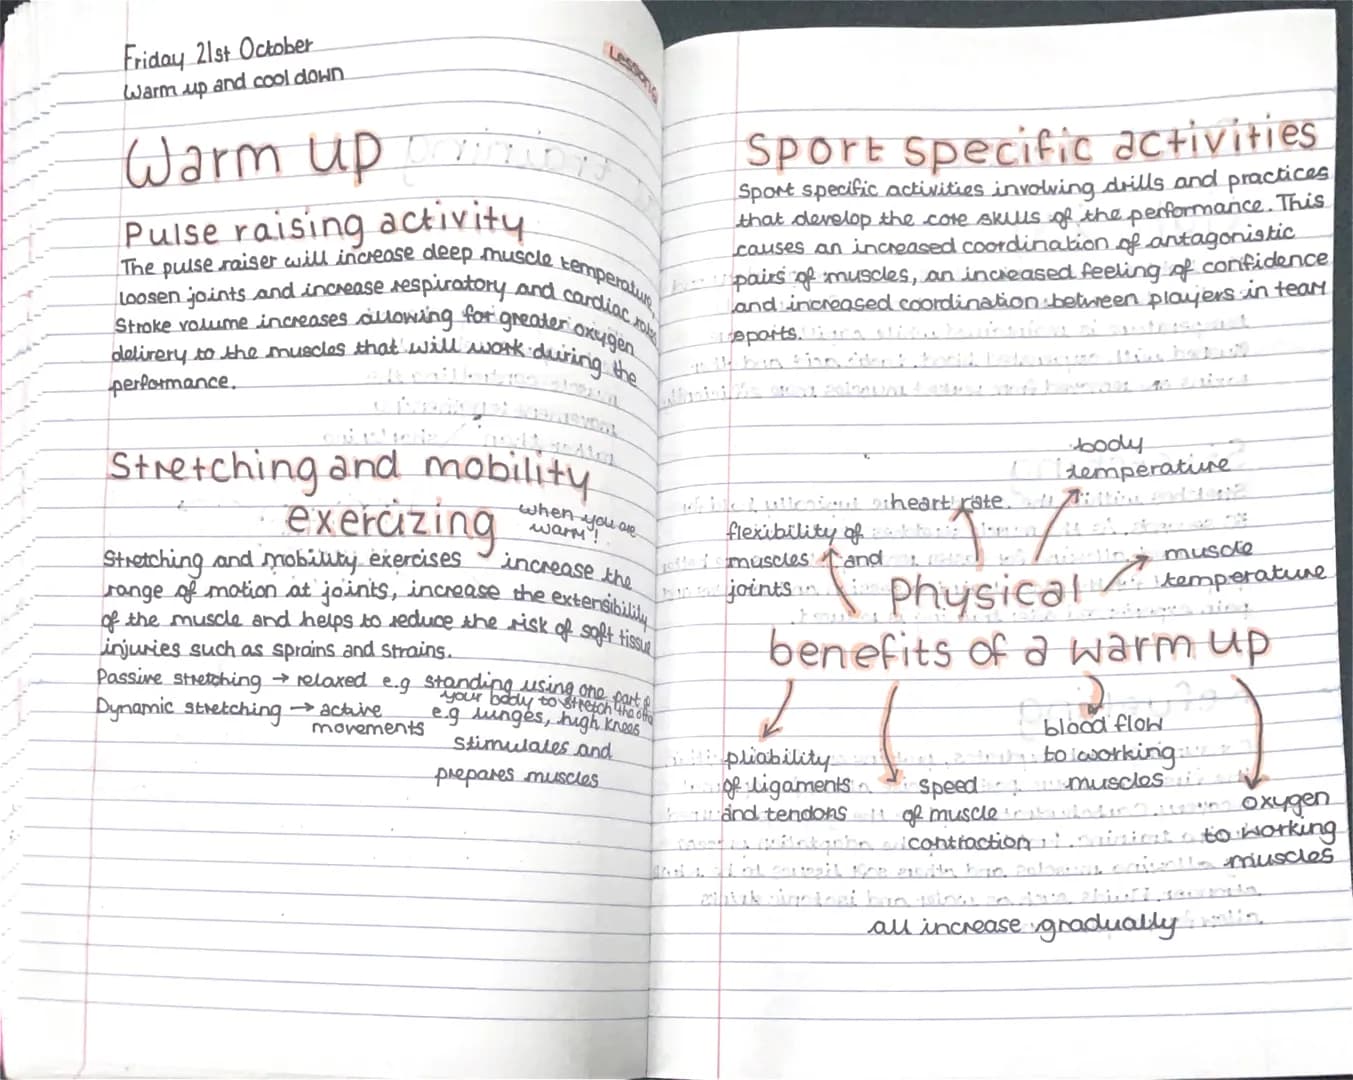 Friday 21st October
Warm up and cool down
Warm up
Pulse raising activity
The pulse raiser will increase deep muscle temperature,
loosen joints and increase respiratory and cardiac rates
Stroke volume increases allowing for greater oxygen
delivery to the muscles that will work during the
performance.
Stretching and mobility
exercizing
when you are
warm!
Stretching and mobility exercises increase the
range of motion at joints, increase the extensibility
of the muscle and helps to reduce the risk of soft tissue
injuries such as sprains and strains.
Passive stretching → relaxed e.g standing using one part of
your body to stretch the
Dynamic stretching → active e.g lunges, high knees
movements
stimulates and
prepares muscles
Sport specific activities
Sport specific activities involving drills and practices
that develop the core skills of the performance. This
causes an increased coordination of antagonistic
pairs of muscles, an increased feeling of confidence
and increased coordination between players in team
sports.
body
temperature
heart rate
flexibility of
muscles and
joints
muscle
temperature
Physical
benefits of a warm up
pliability
of ligaments
and tendons
speed
of muscle
contraction
blood flow
to working
muscles
oxygen
to working
muscles
all increase gradually